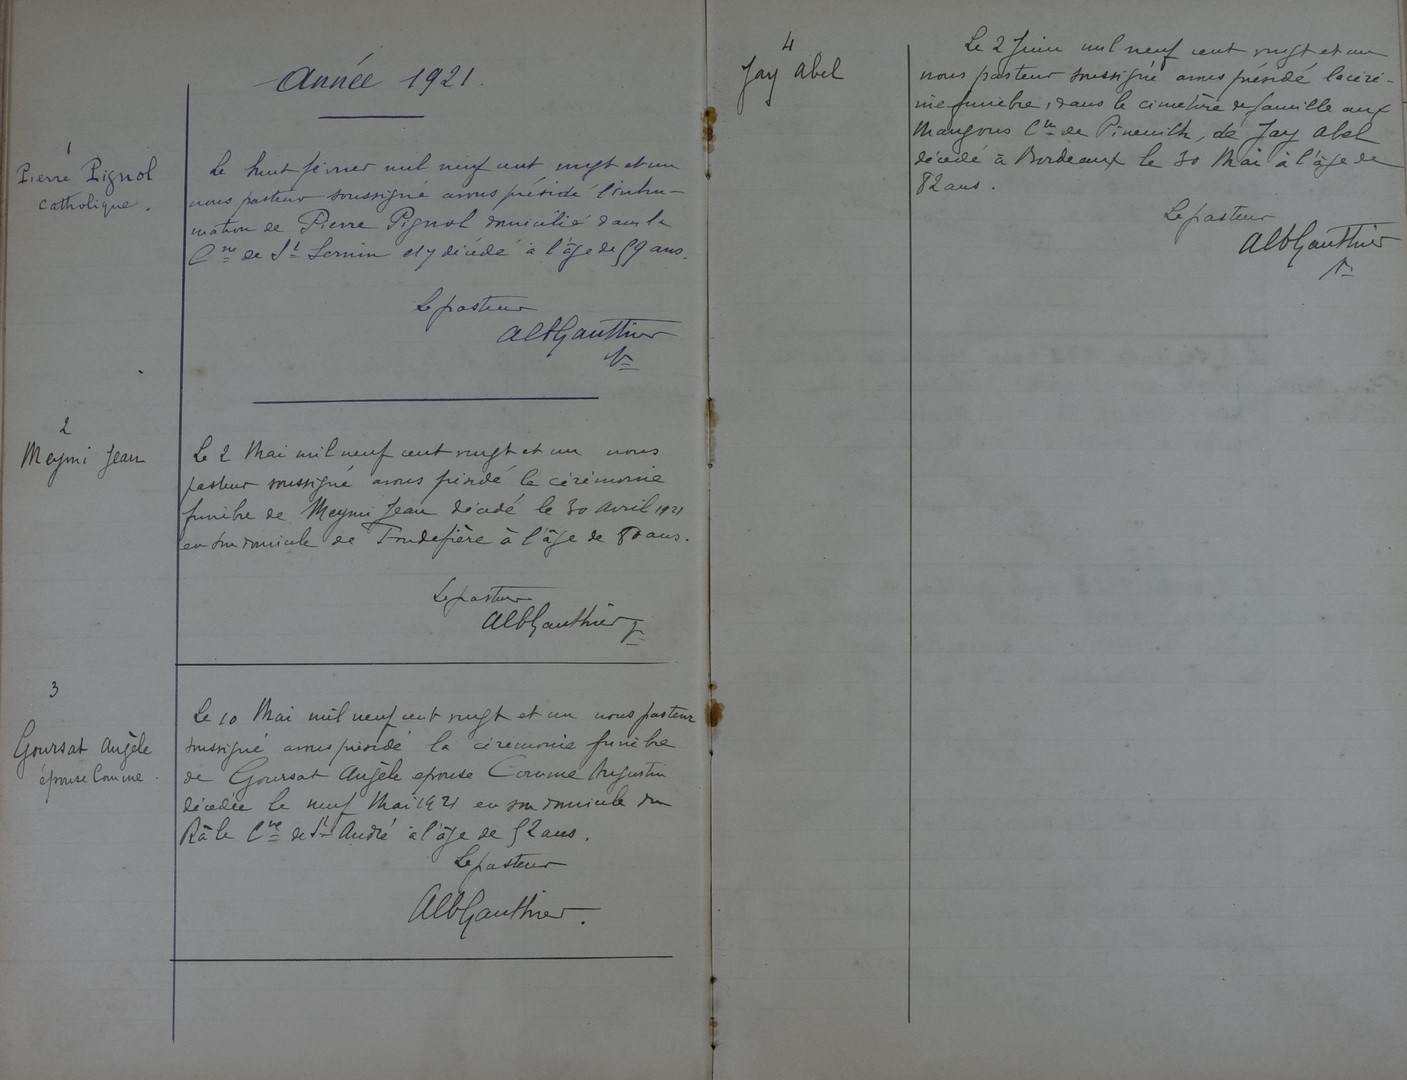 Année 1921.
1
Pierre Pignol
catholique.
Le huit février mil neuf cent vingt et un
nous pasteur soussigné avons présidé l'inhu-
mation de Pierre Pignol domicilié dans la
Cne de St Sernin et y décédé à l'âge de 59 ans.
Le pasteur
AlbGauthier
2
Meymi Jean
Le 2 Mai mil neuf cent vingt et un nous
pasteur soussigné avons présidé la cérémonie
funèbre de Meymi Jean décédé le 30 avril 1921
en son domicile de à l'âge de 80 ans.
Le pasteur
AlbGauthier
3
Goursat Angèle
épouse Comme.
Le 10 Mai mil neuf cent vingt et un nous pasteur
soussigné avons présidé la cérémonie funèbre
de Goursat Angèle épouse Comme Augustin
décédée le neuf Mai 1921 en son domicile du
Râle Cne de St André à l'âge de 52 ans.
Le pasteur
AlbGauthier.
4
Jay Abel
Le 2 Juin mil neuf cent vingt et un
nous pasteur soussigné avons présidé la céré-
nie funèbre, dans le cimetière de famille aux
Mangons Cne de Pineuilh, de Jay Abel
décédé à Bordeaux le 30 Mai à l'âge de
82 ans.
Le pasteur
AlbGauthier